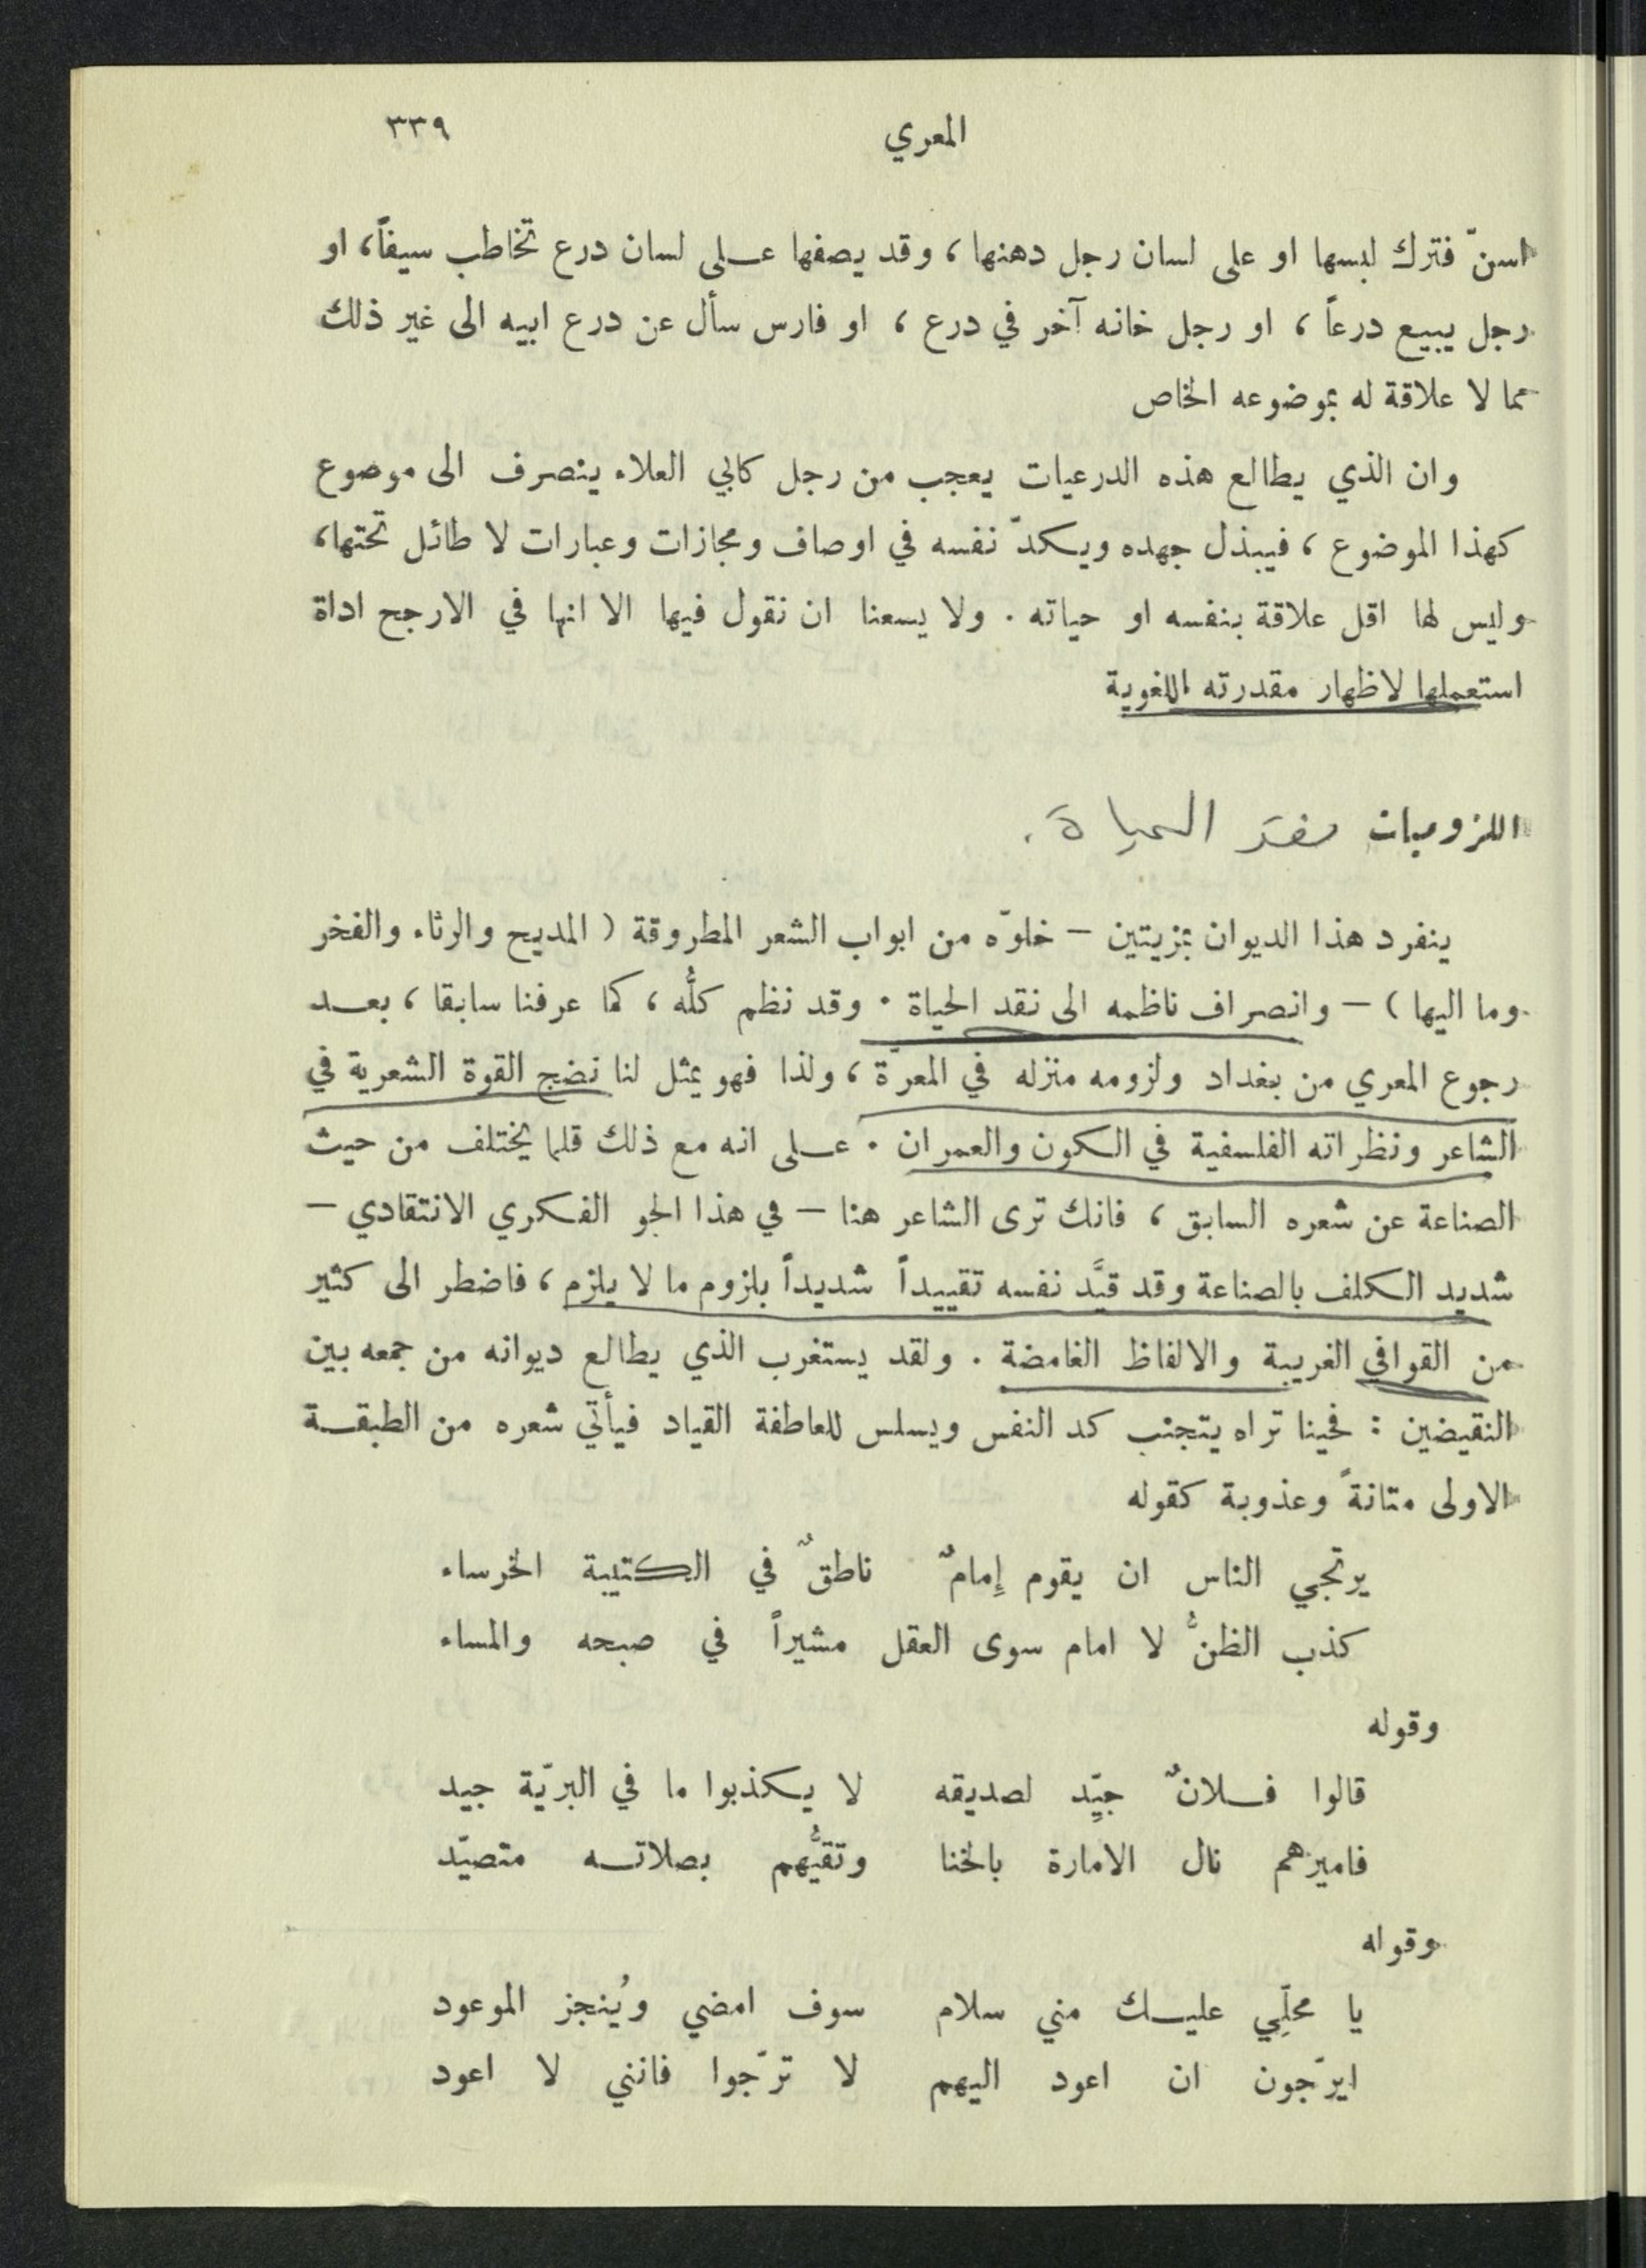 المعري ٣٣٩
اسنّ فترك لبسها او على لسان رجل دهنها ، وقد يصفها على لسان درع تخاطب سيفاً، او
رجل يبيع درعاً ، او رجل خانه آخر في درع ، او فارس سأل عن درع ابيه الى غير ذلك
مما لا علاقة له بموضوعه الخاص
وان الذي يطالع هذه الدرعيات يعجب من رجل كابي العلاء ينصرف الى موضوع
كهذا الموضوع ، فيبذل جهده ويكدّ نفسه في اوصاف ومجازات وعبارات لا طائل تحتها،
وليس لها اقل علاقة بنفسه او حياته . ولا يسعنا ان نقول فيها الا انها في الارجح اداة
استعملها لاظهار مقدرته اللغوية
اللزوميات نقد الحياة .
ينفرد هذا الديوان بمزيتين – خلوّه من ابواب الشعر المطروقة ( المديح والرثاء والفخر
وما اليها ) – وانصراف ناظمه الى نقد الحياة . وقد نظم كلُّه ، كما عرفنا سابقا ، بعد
رجوع المعري من بغداد ولزومه منزله في المعرّة ، ولذا فهو يمثل لنا نضج القوة الشعرية في
الشاعر ونظراته الفلسفية في الكون والعمران . على انه مع ذلك قلما يختلف من حيث
الصناعة عن شعره السابق ، فانك ترى الشاعر هنا – في هذا الجو الفكري الانتقادي –
شديد الكلف بالصناعة وقد قيَّد نفسه تقييداً شديداً بلزوم ما لا يلزم ، فاضطر الى كثير
من القوافي الغريبة والالفاظ الغامضة . ولقد يستغرب الذي يطالع ديوانه من جمعه بين
النقيضين : فحينا تراه يتجنب كد النفس ويسلس للعاطفة القياد فيأتي شعره من الطبقة
الاولى متانةً وعذوبة كقوله
يرتجي الناس ان يقوم إمامٌ ناطقٌ في الكتيبة الخرساء
كذب الظنُّ لا امام سوى العقل مشيراً في صبحه والمساء
وقوله
قالوا فلانٌ جيِّد لصديقه لا يكذبوا ما في البريّة جيد
فاميرهم نال الامارة بالخنا وتقيُّهم بصلاته متصيّد
وقوله
يا محلِّي عليك مني سلام سوف امضي ويُنجز الموعود
ايرّجون ان اعود اليهم لا ترّجوا فانني لا اعود